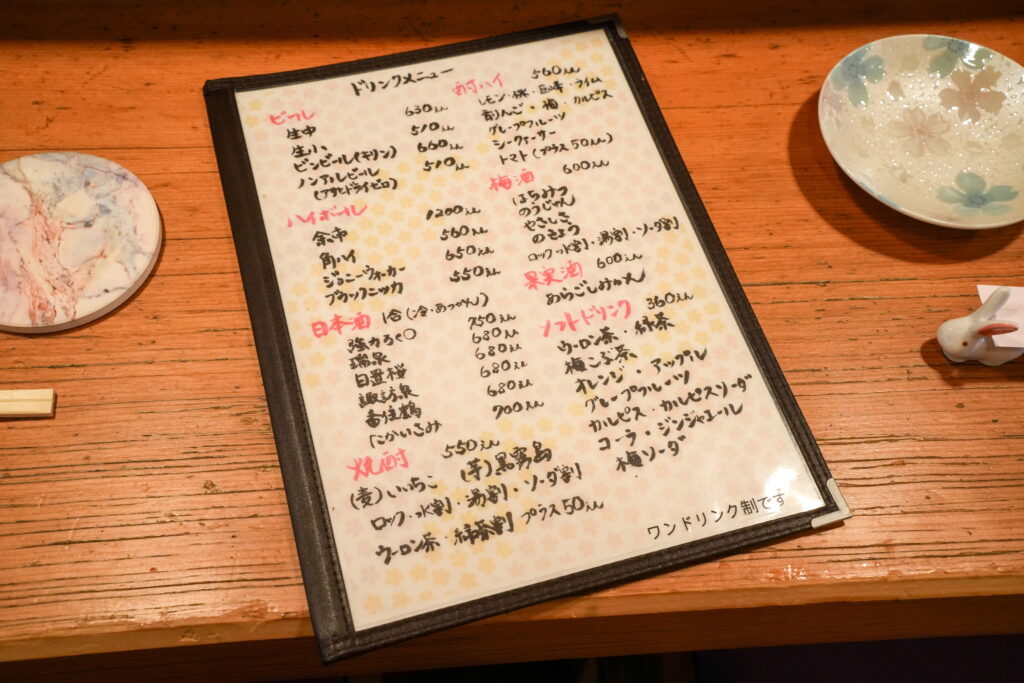 ドリンクメニュー
ビール
生中 630えん
生小 510えん
ビンビール(キリン) 660えん
ノンアルビール 510えん
(アサヒドライゼロ)
ハイボール
1200えん
角ハイ 560えん
ジョニーウォーカー 650えん
ブラックニッカ 550えん
日本酒 1合(冷・あつかん)
強力 750えん
瑞泉 680えん
日置桜 680えん
諏訪泉 680えん
680えん
にかいさみ 700えん
焼酎 550えん
(麦)いいちこ (芋)黒霧島
ロック・水割・湯割・ソーダ割
ウーロン茶・緑茶割 プラス50えん
酎ハイ 560えん
レモン・桃・巨峰・ライム
青りんご・梅・カルピス
グレープフルーツ
シークァーサー
トマト(プラス50えん)
梅酒 600えん
はちみつ
のうじゅん
やさしさ
ロック・水割・湯割・ソーダ割
果実酒 600えん
あらごしみかん
ソフトドリンク 360えん
ウーロン茶・緑茶
梅こぶ茶
オレンジ・アップル
グレープフルーツ
カルピス・カルピスソーダ
コーラ・ジンジャエール
梅ソーダ
ワンドリンク制です